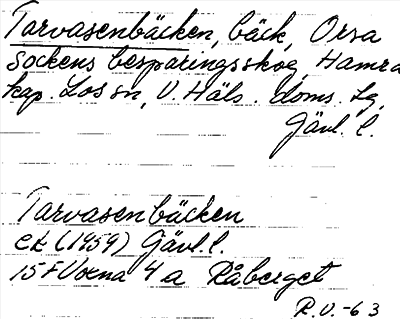 Tarvasenbäcken, bäck, Orsa
sockens besparingsskog, Hamra
kap. Los sn, V. Häls. doms. tg,
Gävl. l.
Tarvasenbäcken
ek (1959) Gävl. l.
15 F Voxna 4 a Råberget
R.V. -63